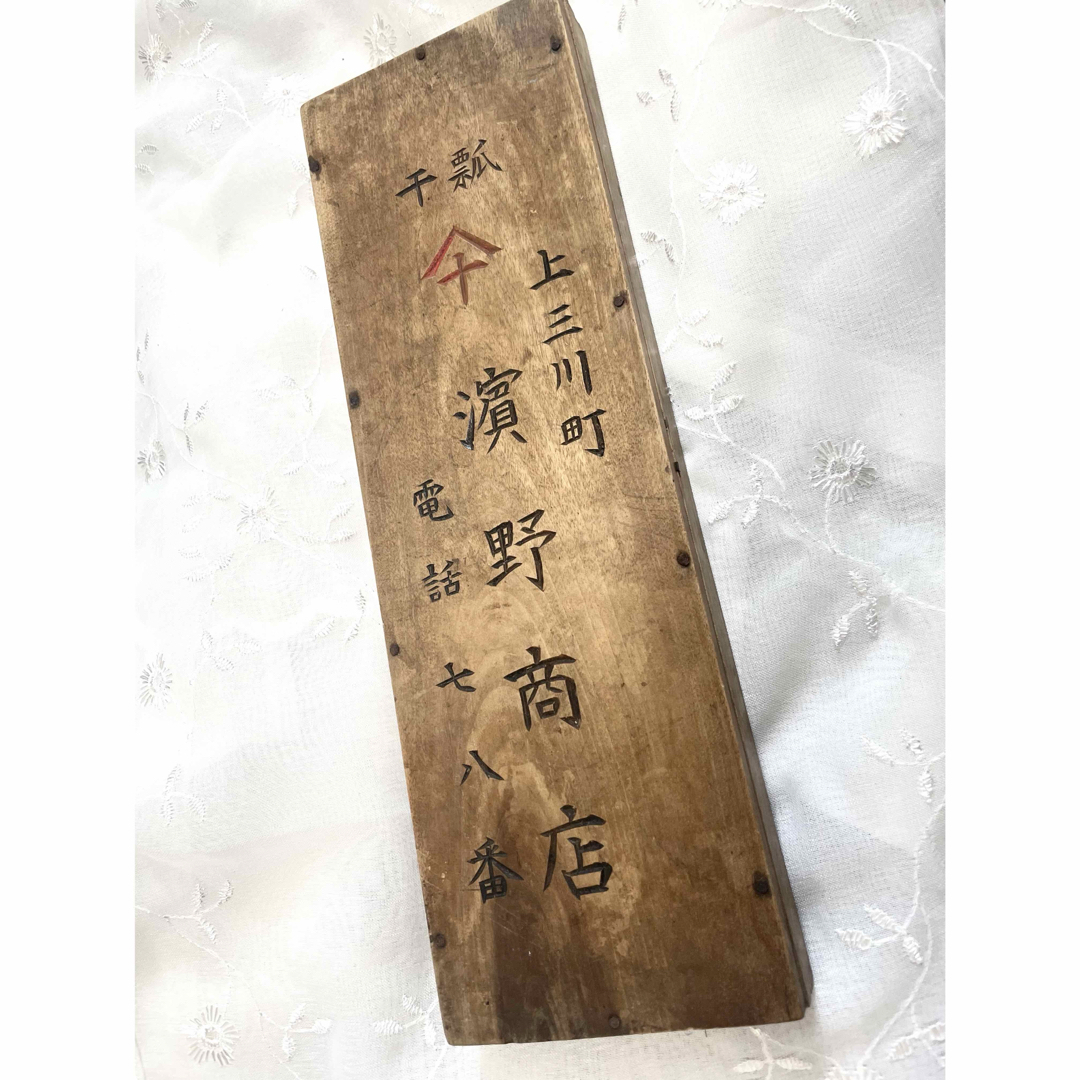 干瓢
上三川町
𠆢十
濱野商店
電話七八番